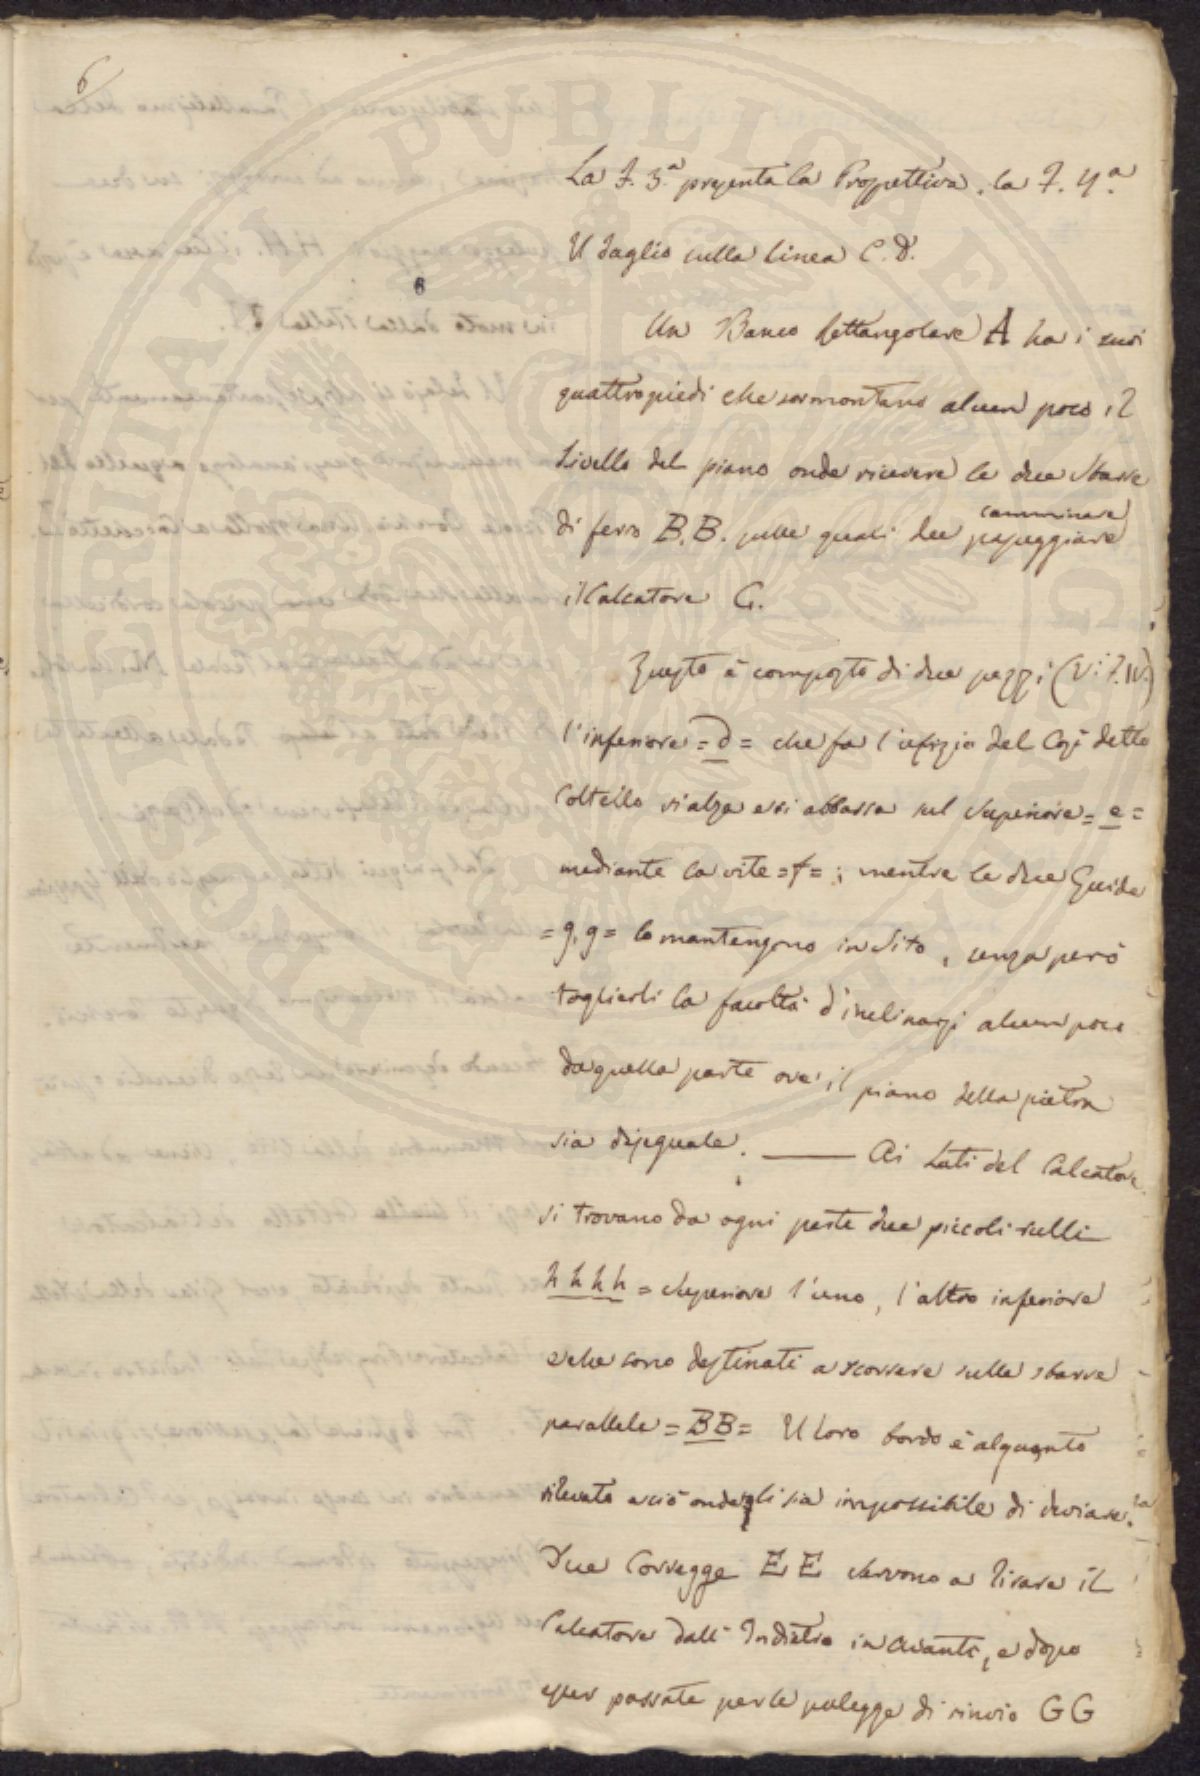 6
La F. 3.ª presenta la Prospettiva, la F. 4.ª
Il Taglio sulla Linea C.D.
Un Banco Rettangolare A ha i suoi
quattro piedi che sormontano alcun poco il
Livello del piano onde ricevere le due Sbarre
camminare
di ferro B.B. sulle quali dee passeggiare
il Calcatore C.
Questo è composto di due pezzi (V: F. IV.)
l'inferiore = d = che fa l'ufizio del Così detto
Coltello si alza e si abbassa sul Superiore = e =
mediante la vite = f = ; mentre le due Guide
= g, g = lo mantengono in Sito, senza però
togliergli la facoltà d'inclinarsi alcun poco
da quella parte ove il piano della pietra
sia diseguale. —— Ai Lati del Calcatore
si trovano da ogni parte due piccoli rulli
h h h h = Superiore l'uno, l'altro inferiore
e che sono destinati a scorrere sulle sbarre
parallele = BB = Il Loro bordo è alquanto
rilevato acciò onde gli sia impossibile di deviare.
Due Corregge E E Servono a Tirare il
Calcatore dall'Indietro in Avanti, e dopo
esser passate per le pulegge di rinvio GG